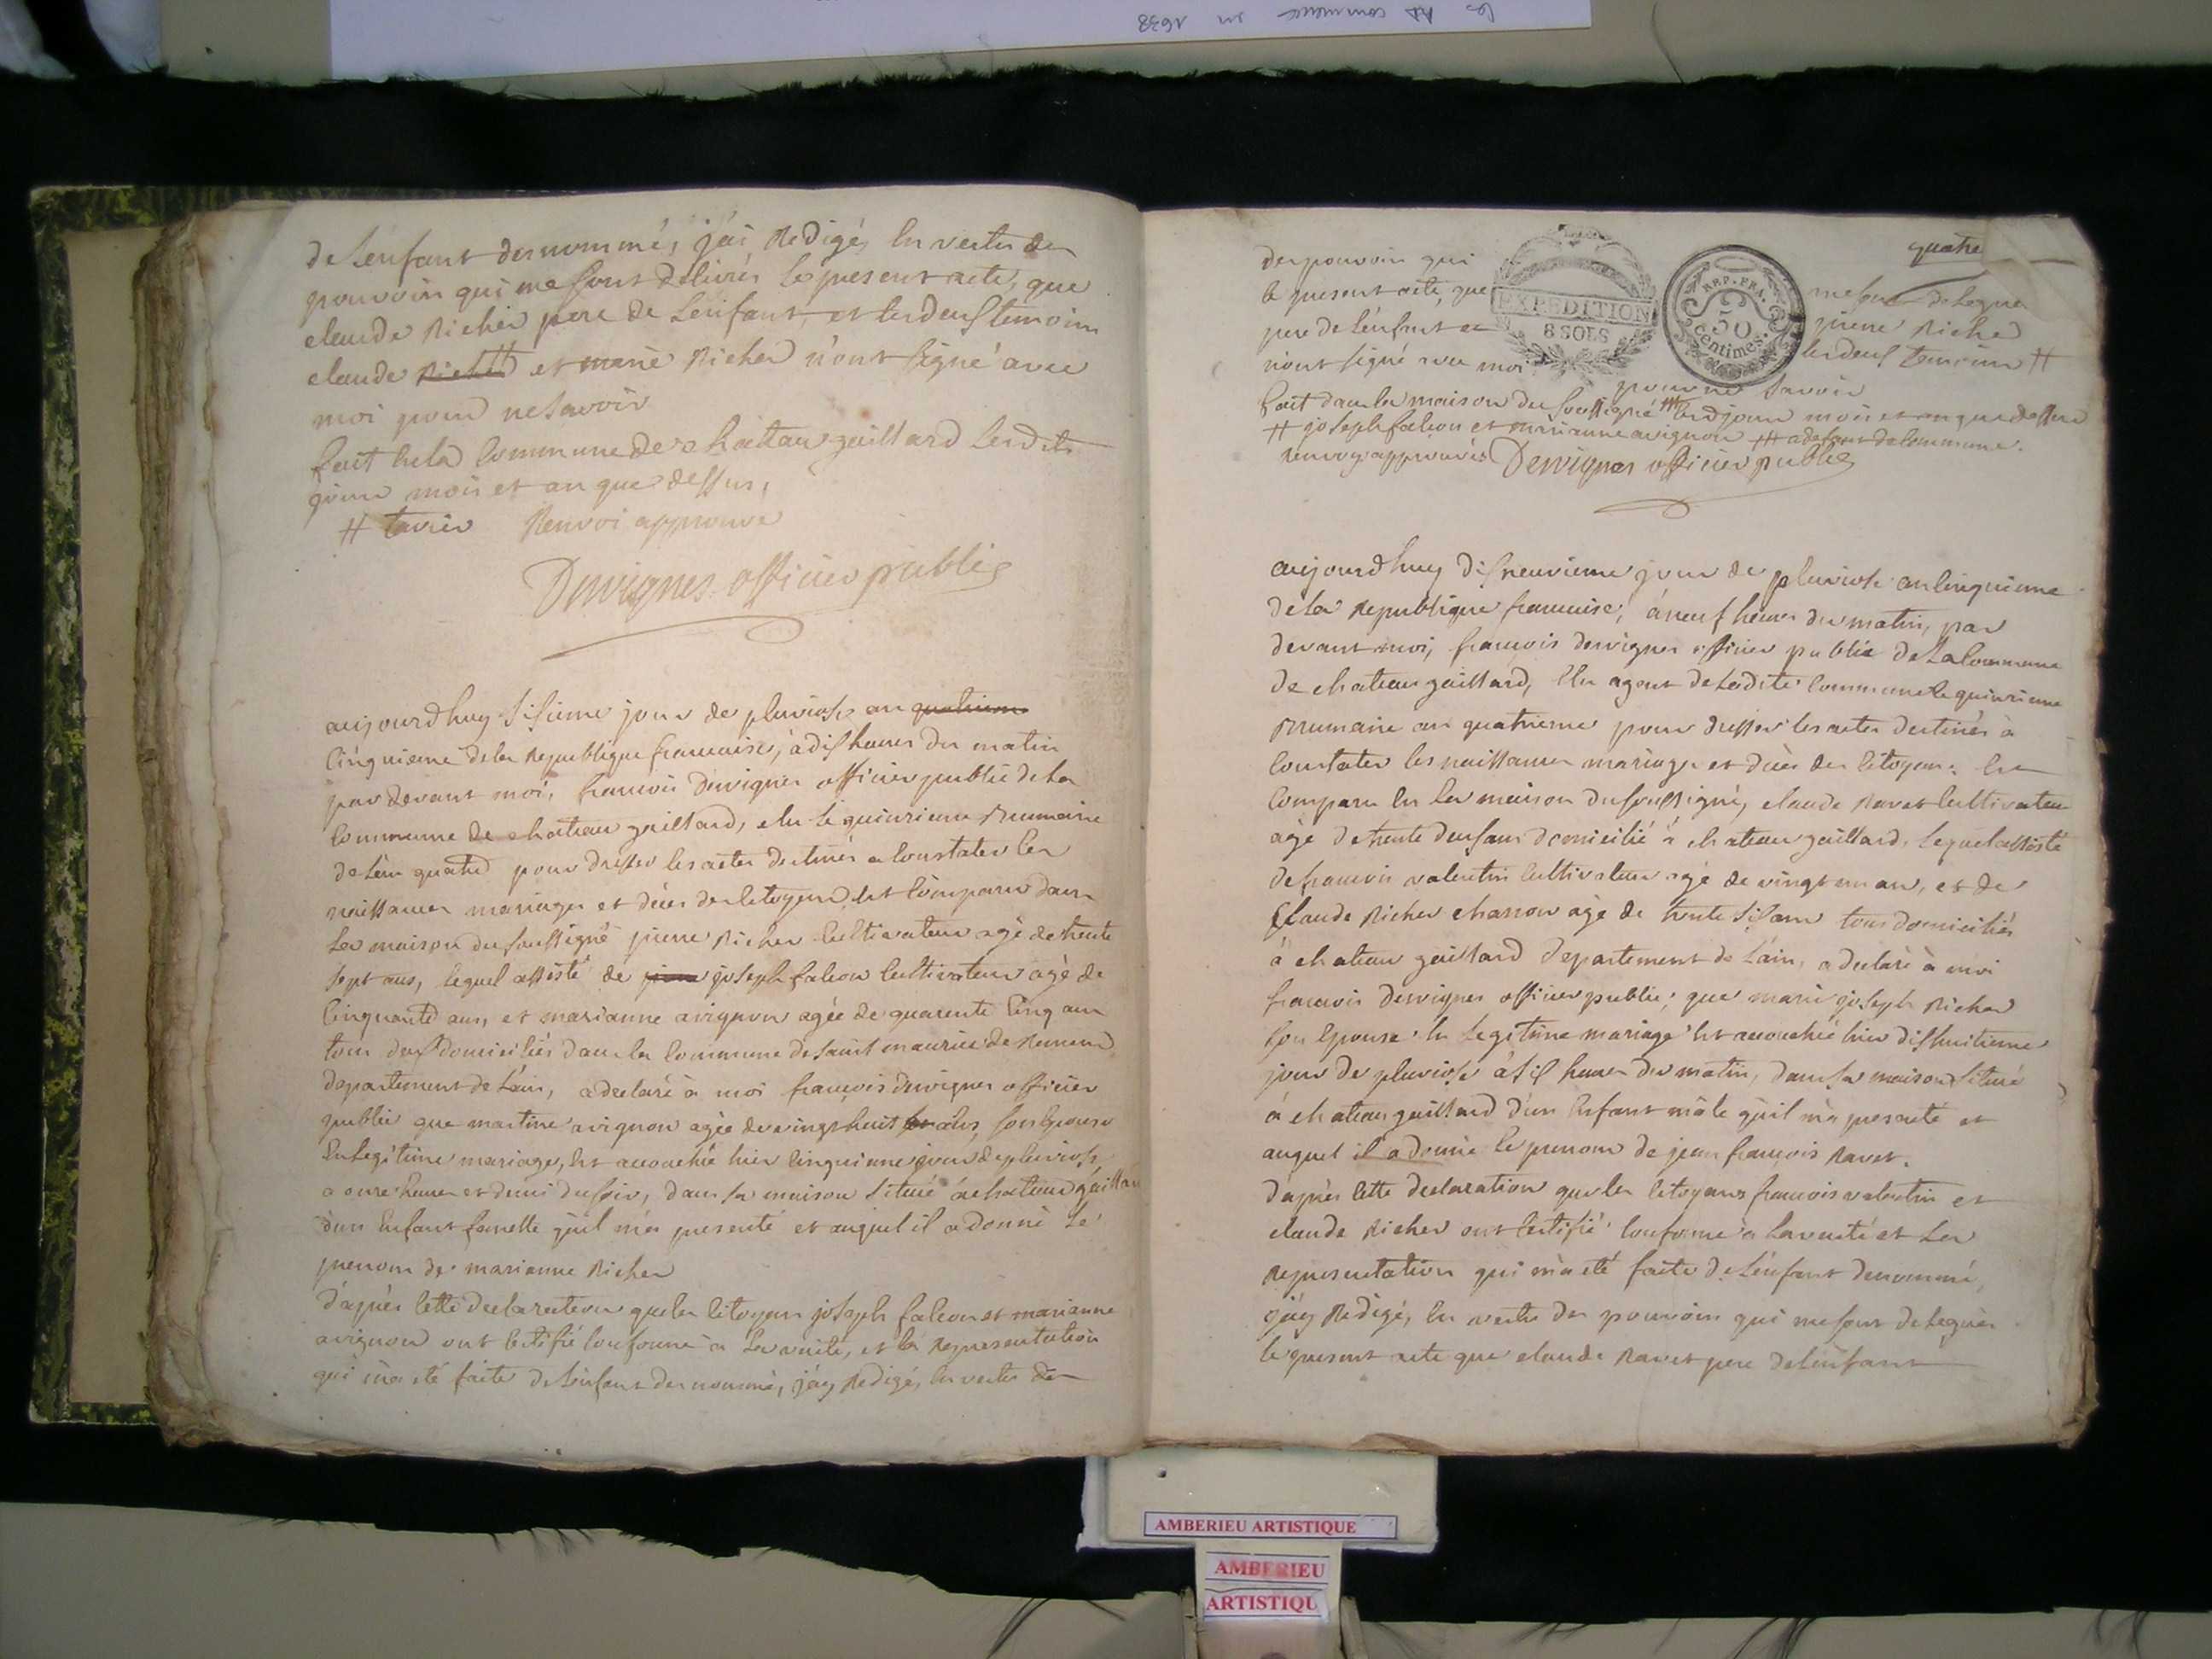 les Ad commence en 1638
de L'enfant denommé, j'ai Redigé, En vertu des
pouvoirs qui me sont delivrés le present acte, que
claude Richer pere de L'enfant, et les deux temoins
claude et marie Richer n'ont signé avec
moi pour ne savoir
fait En la Commune de chateau gaillard Lesdits
jour mois et an que dessus,
# tavier Renvoi approuvé
Dervignes officier public
aujourdhuy sisieme jour de pluviose an quatrieme
Cinquieme de la Republique francaise, a dis heures du matin
par devant moi, francois Dervignes officier public de la
Commune de chateau gaillard, elu le quinzieme Brumaire
de L'an quatre pour dresser les actes destinés a Constater les
naissances mariages et décès des Citoyens, Est Comparu dans
La maison du soussigné pierre Richer Cultivateur agé de trente
sept ans, lequel assisté de joseph falcon Cultivateur agé de
Cinquante ans, et marianne avignon agée de quarente Cinq ans
tous deux domiciliés dans la Commune de saint maurice de Remens
departement de L'ain, a declaré à moi francois Dervignes officier
public que martine avignon agée de vingt huit ans, son Epouse
En Legitime mariage, Est accouchée hier Cinquieme jour de pluviose
a onze heures et demi du soir, dans sa maison située à chateau gaillard
d'un Enfant femelle qu'il m'a presenté et auquel il a donné Le
prenom de marianne Richer
d'après Cette declaration que les Citoyens joseph falcon et marianne
avignon ont Certifié Conforme à La verité, et la Representation
qui m'a été faite de L'enfant denommé, j'ay Redigé, En vertu des
quatre
des pouvoirs qui me sont delegués
le present acte, que pierre Richer
pere de L'enfant et les deux temoins #
n'ont signé avec moi pour ne savoir
EXPEDITION
8 SOLS
REP. FRA.
50
centimes.
fait dans la maison du soussigné ### Lesdjour mois et an que dessus
# joseph falcon et marianne avignon ### a defaut de Commune.
renvoys approuvés Dervignes officier public
aujourdhuy disneuvieme jour de pluviose an Cinquieme
de La Republique francaise, à neuf heures du matin, par
devant moi, francois Dervignes officier public de La Commune
de chateau gaillard, Elu agent de Ladite Commune le quinzieme
Brumaire an quatrieme pour dresser les actes destinés à
Constater les naissances mariages et décès des Citoyens. Est
Comparu En La maison du soussigné, claude Ravet Cultivateur
agé de trente deux ans domicilié à chateau gaillard, Lequel assisté
de francois valentin Cultivateur agé de vingt un an, et de
Claude Richer charron agé de trente sis ans tous domiciliés
à chateau gaillard departement de L'ain, a declaré à moi
francois Dervignes officier public; que marie joseph Richer
son Epouse En Legitime mariage Est accouchée hier dishuitieme
jour de pluviose à sis heures du matin, dans sa maison située
à chateau gaillard d'un Enfant mâle qu'il m'a presenté et
auquel il a donné le prenom de jean francois Ravet.
d'après Cette declaration que les Citoyens francois valentin et
claude Richer ont Certifié Conforme à La verité et La
Representation qui m'a été faite de L'enfant denommé,
j'ay Redigé, En vertu des pouvoirs qui me sont delegués
le present acte que claude Ravet pere de L'enfant
AMBERIEU ARTISTIQUE
AMBERIEU
ARTISTIQU